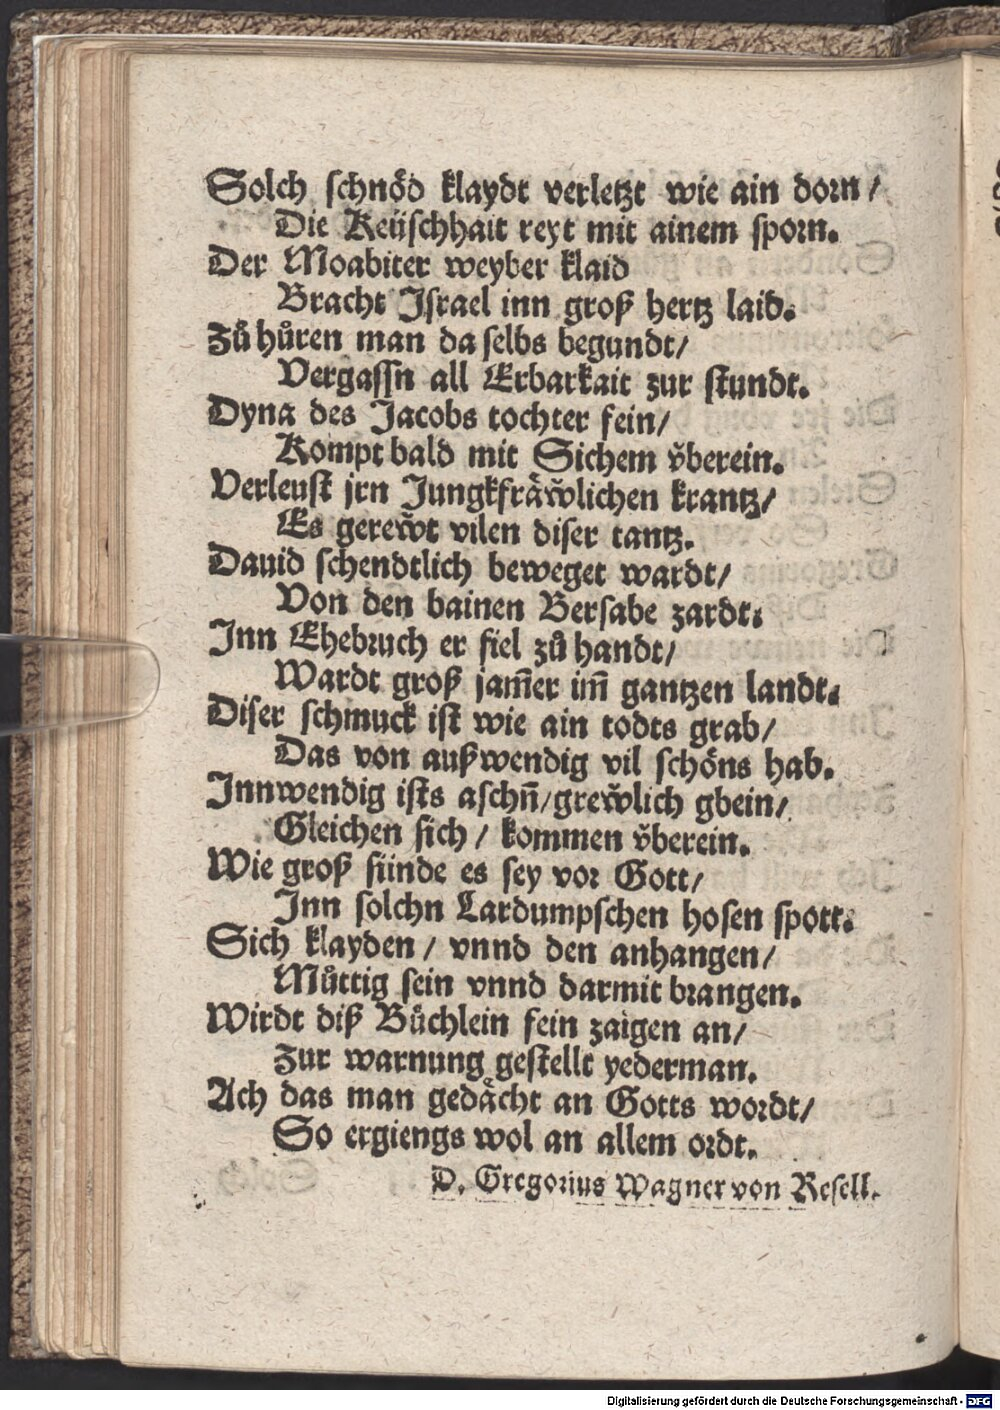 Solch schnöd klaydt verletzt wie ain dorn /
Die Keüschhait reyt mit ainem sporn.
Der Moabiter weyber klaid
Bracht Israel inn groß hertz laid.
Zů hůren man da selbs begundt /
Vergassn all Erbarkait zur stundt.
Dyna des Jacobs tochter fein /
Kompt bald mit Sichem v̌berein.
Verleust jrn Jungkfräw̌lichen krantz /
Es gerew̌t vilen diser tantz.
Dauid schendtlich beweget wardt /
Von den bainen Bersabe zardt.
Inn Ehebruch er fiel zů handt /
Wardt groß jam̄er im̄ gantzen landt.
Diser schmuck ist wie ain todts grab /
Das von außwendig vil schöns hab.
Innwendig ists aschn̄ / grew̌lich gbein /
Gleichen sich / kommen v̌berein.
Wie groß sünde es sey vor Gott /
Inn solchn Lardumpschen hosen spott.
Sich klayden / vnnd den anhangen /
Můttig sein vnnd darmit brangen.
Wirdt diß Bůchlein fein zaigen an /
Zur warnung gestellt yederman.
Ach das man gedächt an Gotts wordt /
So ergiengs wol an allem ordt.
D. Gregorius Wagner von Resell.
Digitalisierung gefördert durch die Deutsche Forschungsgemeinschaft - DFG